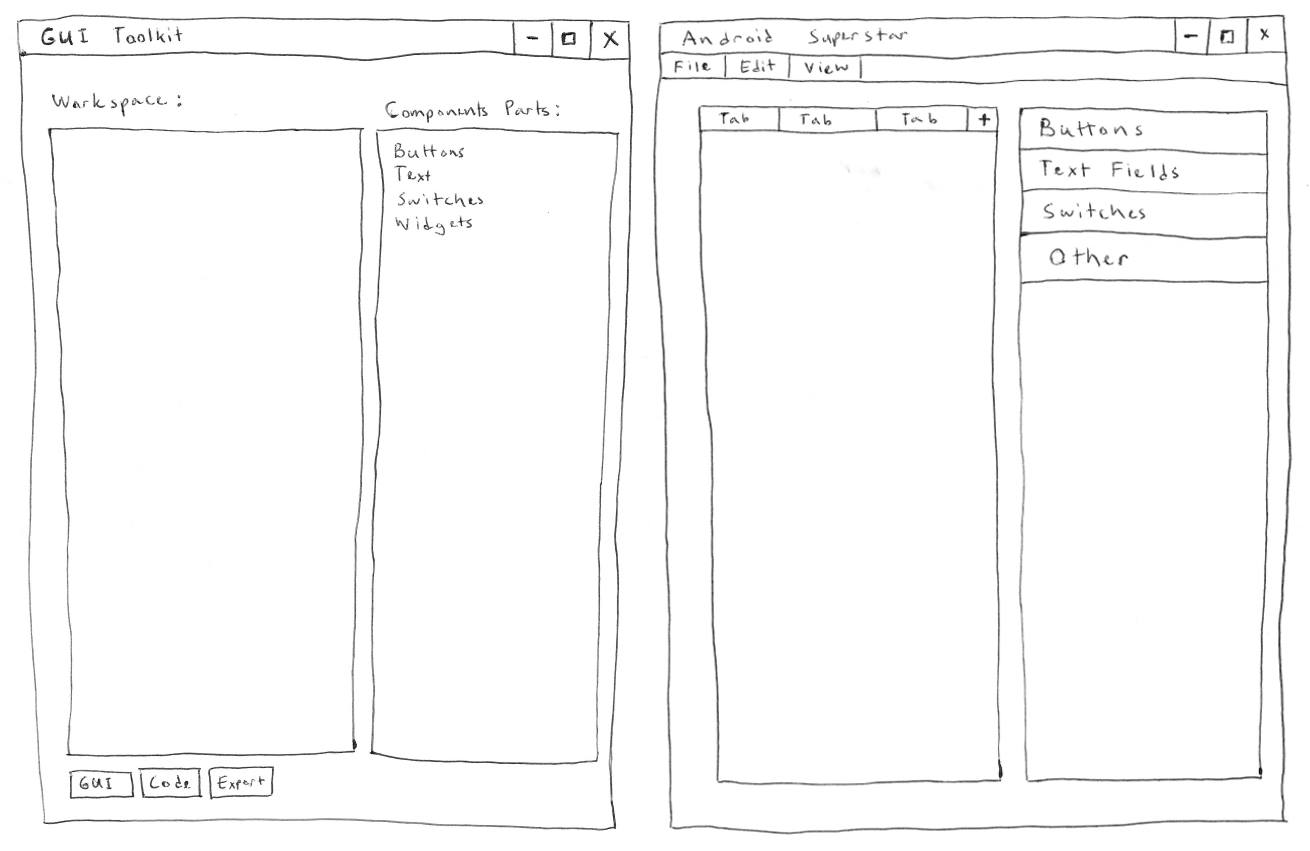 GUI Toolkit - X
Workspace :
Components Parts :
Buttons
Text
Switches
Widgets
GUI Code Export
Android Superstar - X
File Edit View
Tab Tab Tab +
Buttons
Text Fields
Switches
Other